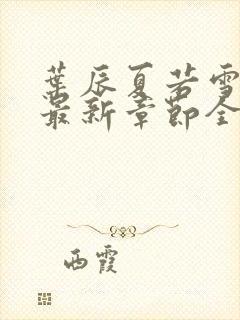 葉辰夏若雪
最新章節全
西霞